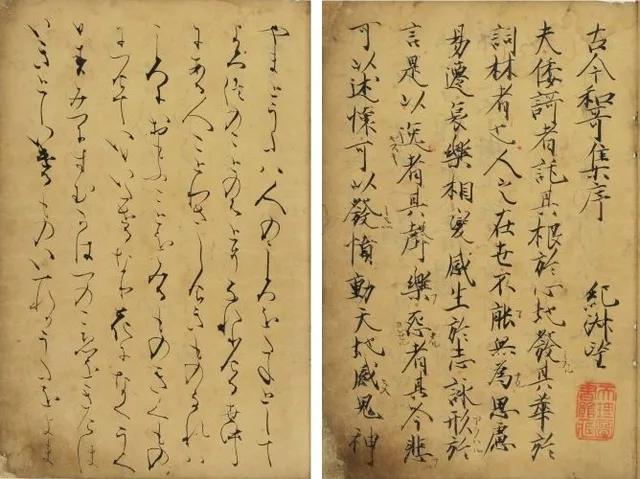 古今和哥集序
紀淑望
夫倭謌者託其根於心地發其華於
詞林者也人之在世不能無為思慮
易遷哀樂相變感生於志詠形於
言是以逸者其聲樂怨者其吟悲
可以述懷可以發憤動天地感鬼神
やまとうたハ人のこゝろをたねとして
よろつのことのはとそなれりける世中
にある人ことわさしけきものなれハ
こゝろにおもふことを見るものきくもの
につけていひいたせるなり花になくうく
ひすみつにすむかはつのこゑをきけは
いきとしいけるものいつれかうたをよま